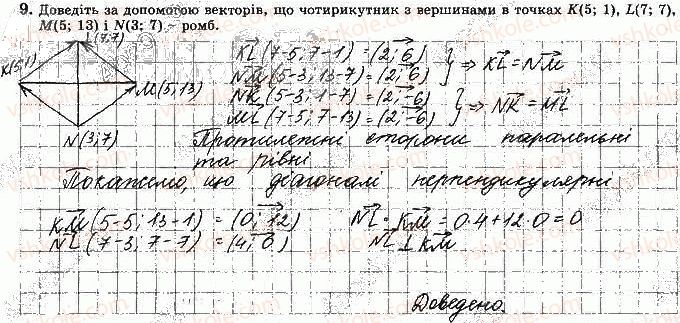 9. Доведіть за допомогою векторів, що чотирикутник з вершинами в точках K(5; 1), L(7; 7),
M(5; 13) і N(3; 7) – ромб.
L(7;7)
K(5;1)
M(5;13)
N(3;7)
KL(7-5; 7-1) = (2; 6)
NM(5-3; 13-7) = (2; 6) } ⇒ KL = NM
NK(5-3; 1-7) = (2; -6)
ML(7-5; 7-13) = (2; -6) } ⇒ NK = ML
Протилежні сторони паралельні
та рівні
Покажемо, що діагоналі перпендикулярні
KM(5-5; 13-1) = (0; 12) NL · KM = 0·4+12·0=0
NL(7-3; 7-7) = (4; 0) NL ⊥ KM
Доведено.